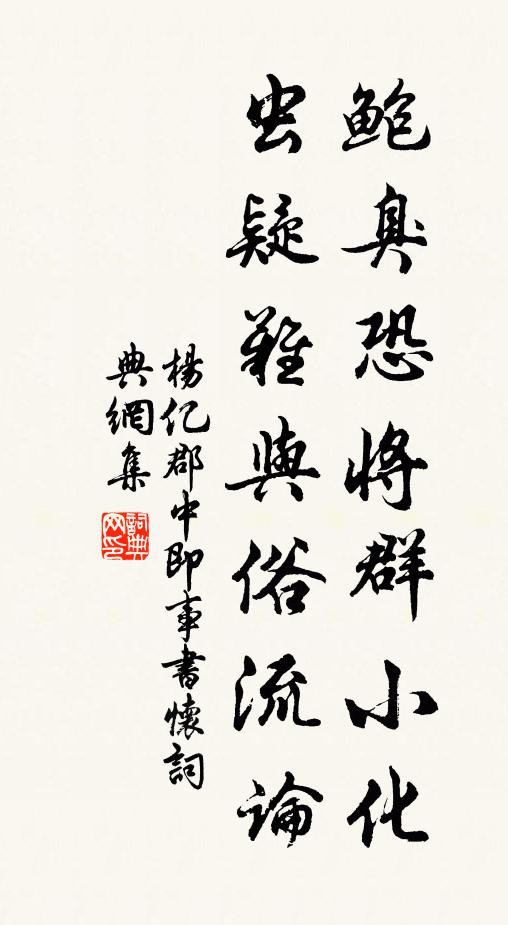 鮑臭恐將群小化
虫疑難與俗流論
楊亿郡中即事書懷詞
典網集
詞典
网印